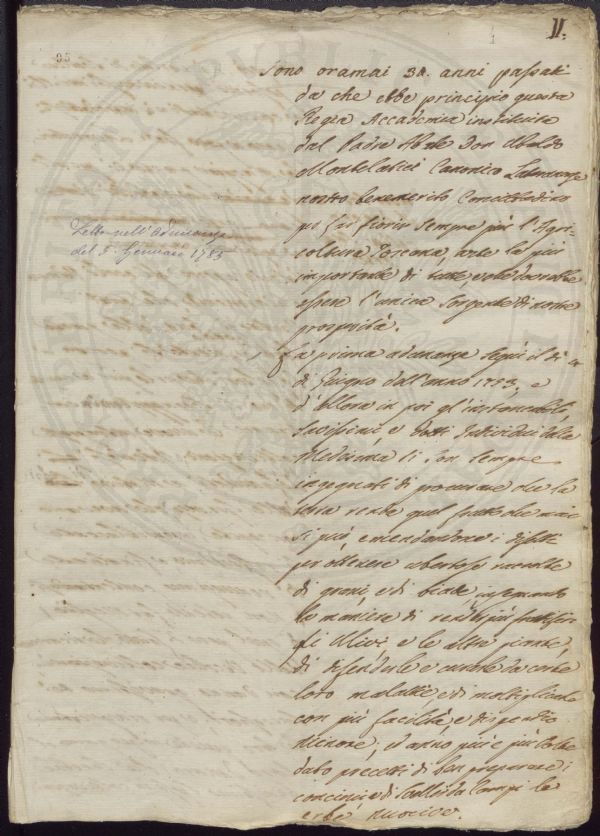 II.
95
Sono oramai 32. anni passati
da che ebbe principio questa
Regia Accademia instituita
dal Padre Abate Don Ubaldo
Montelatici Canonico Lateranense
nostro benemerito Concittadino
per far fiorir sempre più l'Agri-
coltura Toscana, arte la più
importante di tutte, e che dovrebbe
essere l'unica sorgente di nostre
prosperità.
Letta nell'Adunanza
del 5. Gennaio 1785
La prima adunanza seguì il dì
di Giugno dell'anno 1753, e
d'allora in poi gl'
e Dotti Individui della
Medesima si son sempre
ingegnati di procurare che la
terra renda quel frutto che mai
si può emendandone i difetti
per ottenere ubertose raccolte
di grani, e di biade, insegnando
le maniere di render più fruttiferi
gli Ulivi, e le altre piante,
di difenderle e curarle da certe
loro malattie, e di moltiplicarle
con più facilità, e dispendio
minore; ed anno più e più volte
dato precetti di ben preparare i
concimi e di da Campi le
erbe nocive.